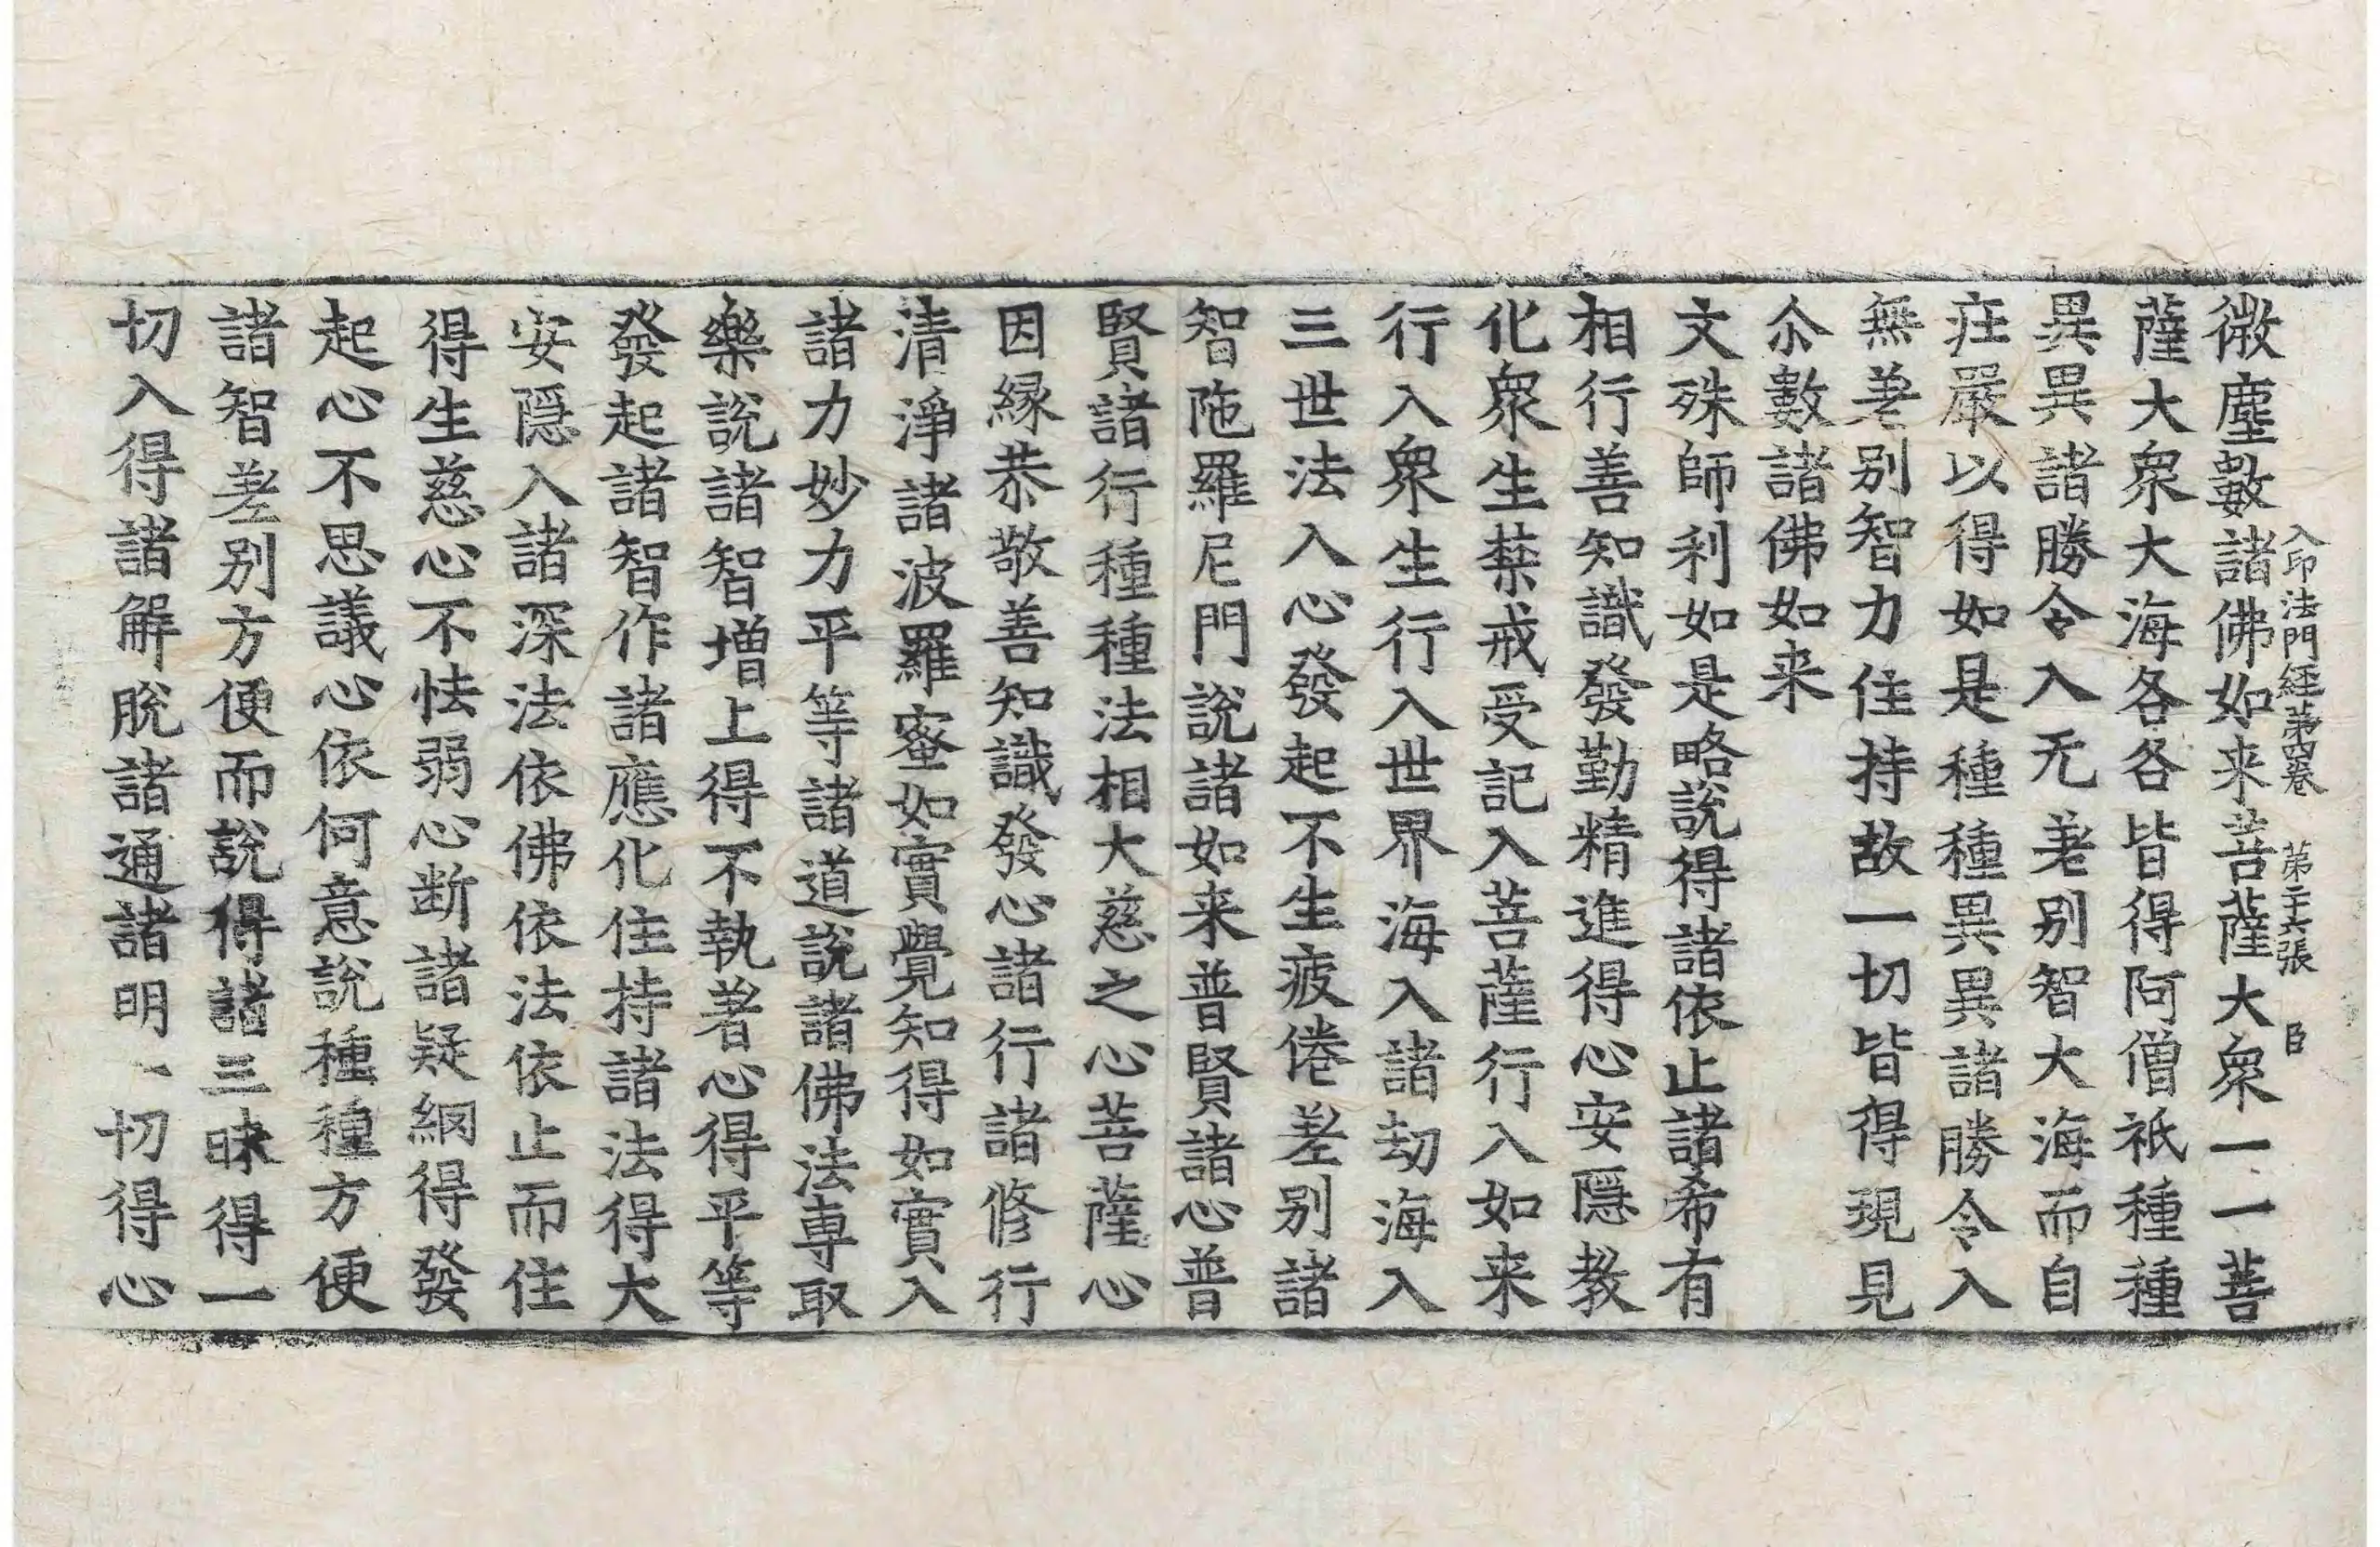 微塵數諸佛如来菩薩大衆一一菩
入印法門經第四卷 第二十六張 臣
薩大衆大海各各皆得阿僧祇種種
異異諸勝令入无差别智大海而自
庄嚴以得如是種種異異諸勝令入
無差别智力住持故一切皆得現見
尒數諸佛如来
文殊師利如是略說得諸依止諸希有
相行善知識發勤精進得心安隱教
化衆生禁戒受記入菩薩行入如来
行入衆生行入世界海入諸劫海入
三世法入心發起不生疲倦差别諸
智陁羅尼門說諸如来普賢諸心普
賢諸行種種法相大慈之心菩薩心
因緣恭敬善知識發心諸行諸修行
清淨諸波羅蜜如實覺知得如實入
諸力妙力平等諸道說諸佛法專取
樂說諸智增上得不執著心得平等
發起諸智作諸應化住持諸法得大
安隱入諸深法依佛依法依止而住
得生慈心不怯弱心断諸疑網得發
起心不思議心依何意說種種方便
諸智差别方便而說得諸三昧得一
切入得諸解脫諸通諸明一切得心